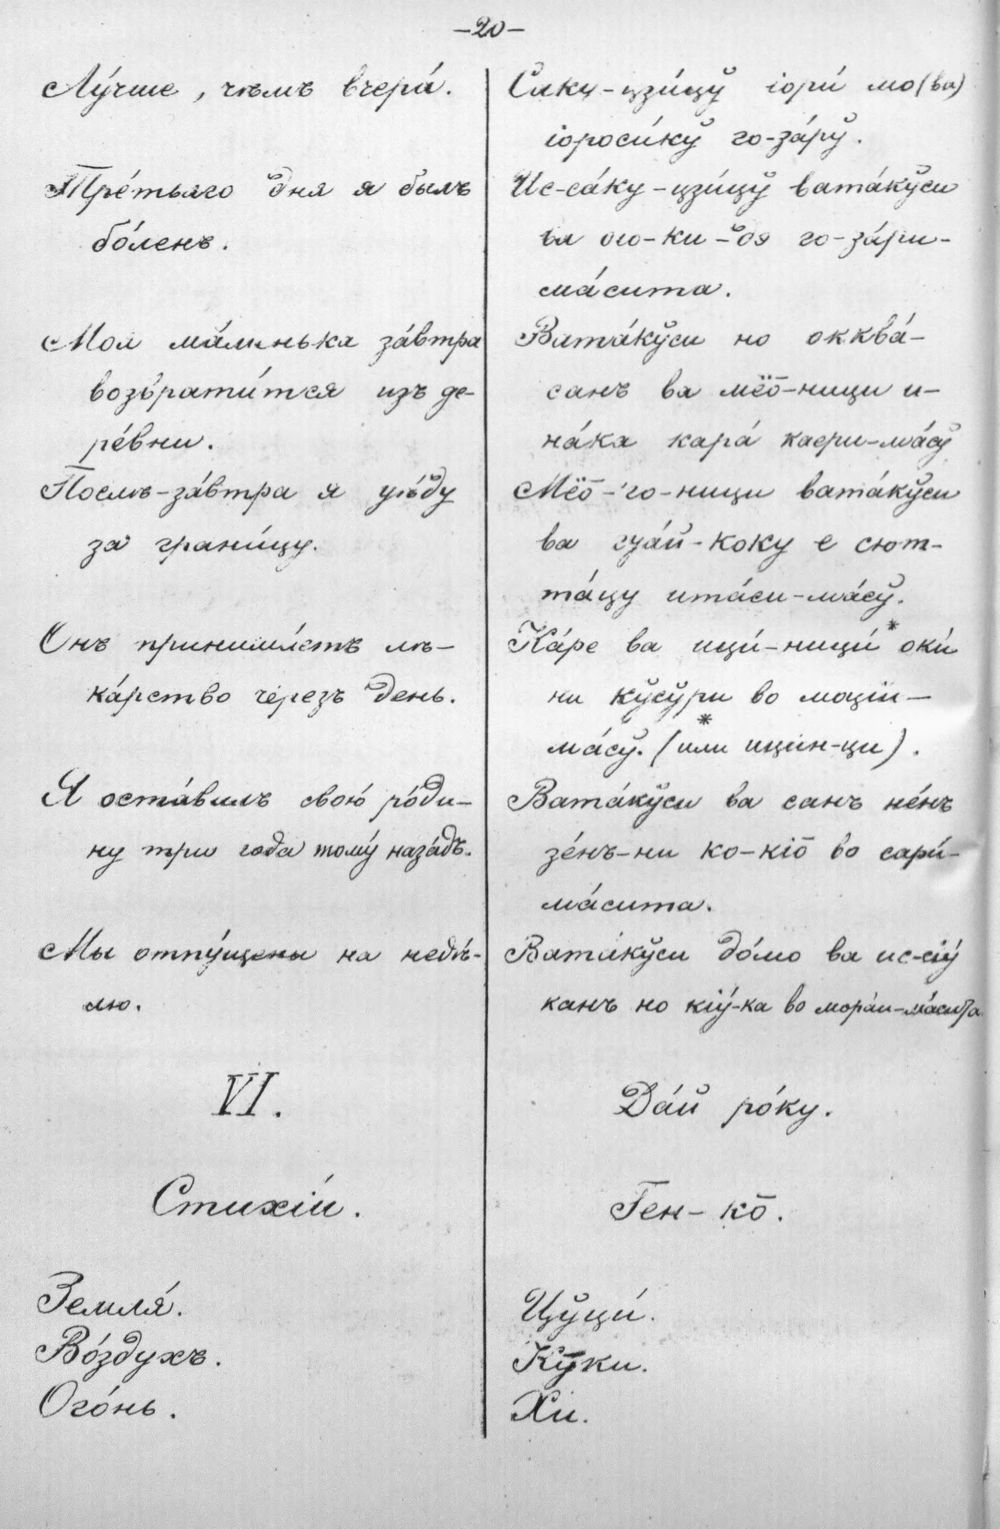 —20—
Лу́чше, чѣмъ вчера́.
Тре́тьяго дня я былъ
бо́ленъ.
Моя ма́менька за́втра
возврати́тся изъ де-
ре́вни.
Послѣ-за́втра я уѣ́ду
за грани́цу.
Онъ принима́етъ лѣ-
ка́рство че́резъ день.
Я оста́вилъ свою́ ро́ди-
ну три года тому́ наза́дъ.
Мы отпу́щены на недѣ́-
лю.
VI.
Стихі́и.
Земля́.
Во́здухъ.
Ого́нь.
Саку-цзи́цӯ іори́ мо(ва)
іороси́кӯ го-за́рӯ.
Ис-са́ку-цзи́цӯ вата́кӯси
ва го-за́ри-
ма́сита.
Вата́кӯси но окква́-
санъ ва мёо̄-ници и-
на́ка кара́ каери-ма́сӯ
Мёо̄-го-ници вата́кӯси
ва гуа́й-коку е сют-
та́цу ита́си-ма́сӯ.
Ка́ре ва ици́-ници́* оки́
ни кӯсӯ́ри во моціи-
ма́сӯ. (*или ицин-ци).
Вата́кӯси ва санъ не́нъ
зе́нъ-ни ко-кіо̄ во сари́-
ма́сита.
Вата́кӯси до́мо ва ис-сіӯ́
канъ но кіӯ́-ка во мора́и-ма́сита
Да́й ро́ку.
Ген-ко̄.
Цӯци́.
Кӯки.
Хи.